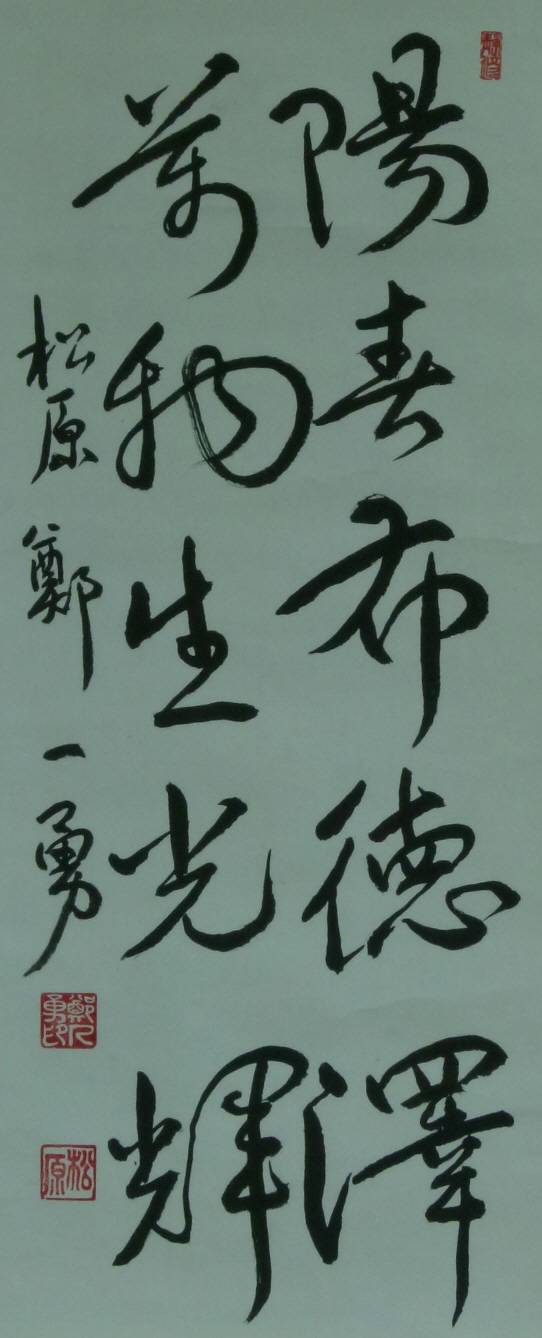 陽春布德澤
萬物生光輝
松原 鄭一勇
鄭一勇印
松原